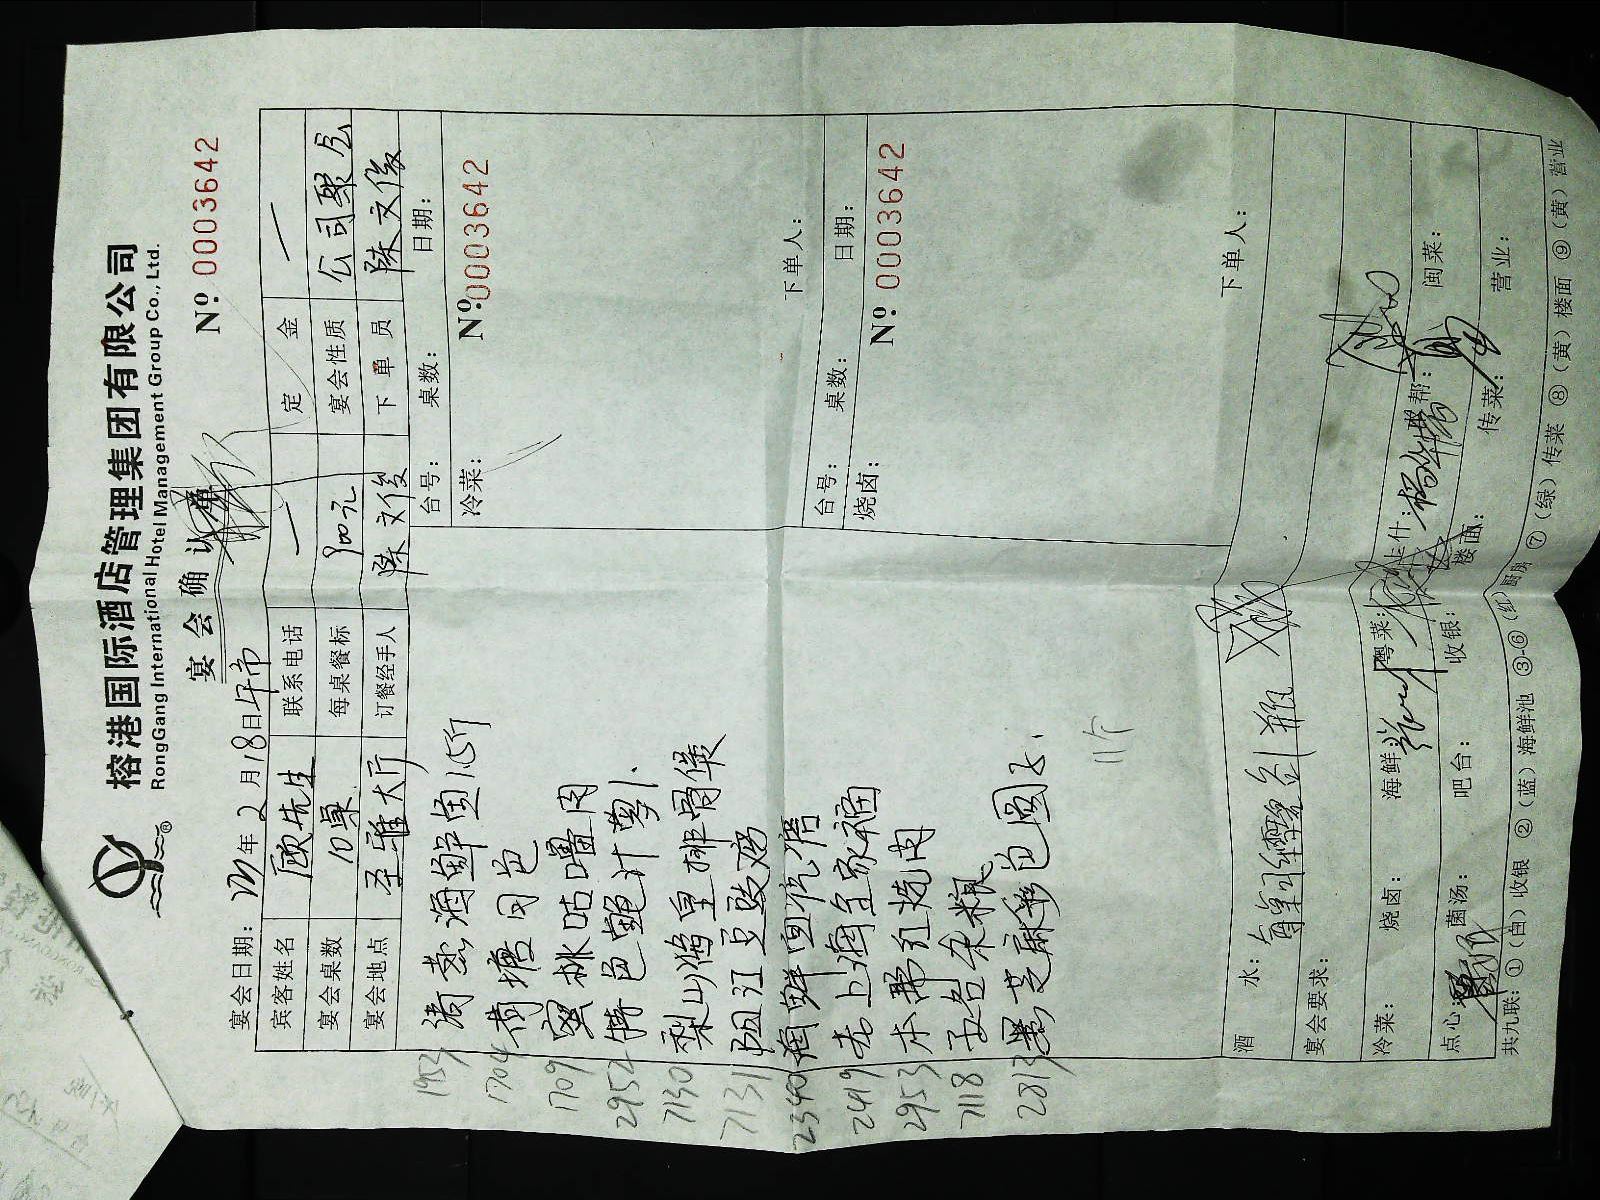 榕港国际酒店管理集团有限公司
RongGang International Hotel Management Group Co., Ltd.
®
宴会确认单
№ 0003642
宴会日期: 年 2 月 18 日午市
宾客姓名 欧先生 联系电话 一 定金 一
宴会桌数 10桌 每桌餐标 900元 宴会性质 公司聚会
宴会地点 圣雅大厅 订餐经手人 陈文俊 下单员 陈文俊
1953 清蒸海鲜鱼1.5斤
1704
1709 蜜桃咕噜肉
2952 特色鲍汁萝卜
7130 梨山焗皇排骨煲
7131 阳江豆豉鸡
2340 海鲜
2419 老上海全家福
2953 本帮红烧肉
7118 五谷杂粮
2813 黑芝麻 包 圆子
台号: 桌数: 日期:
冷菜: №:0003642
下单人:
台号: 桌数: 日期:
烧卤: № 0003642
下单人:
酒水:
宴会要求:
冷菜: 烧卤: 海鲜: 粤菜: 上什: 帮: 闽菜:
点心: 菌汤: 吧台: 收银: 楼面: 传菜: 营业:
共九联: ①(白)收银 ②(蓝)海鲜池 ③-⑥(红)厨房 ⑦(绿)传菜 ⑧(黄)楼面 ⑨(黄)营业